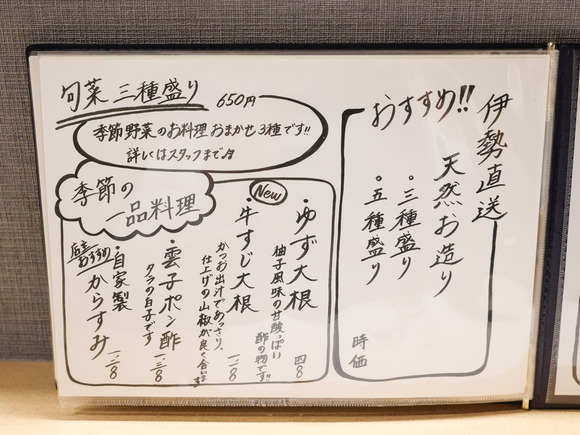 旬菜 三種盛り 650円
季節野菜のお料理 おまかせ3種です!!
詳しくはスタッフまで♪
おすすめ!!
伊勢直送
天然お造り
・三種盛り
・五種盛り
時価
季節の
一品料理
New
・ゆず大根 四八〇
柚子風味の甘酸っぱい
酢の物です!!
・牛すじ大根 一、二八〇
かつお出汁であっさり、
仕上げの山椒が良く合います
・雲子ポン酢 一、三八〇
タラの白子です
店主おすすめ
・自家製
からすみ 一、二八〇